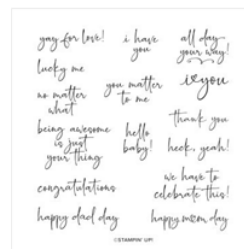 yay for love!
i have
you
all day
your way!
lucky me
i ♥ you
no matter
what
you matter
to me
being awesome
is just
your thing
hello
baby!
thank you
heck, yeah!
congratulations
we have to
celebrate this!
happy dad day
happy mom day
©STAMPIN' UP!